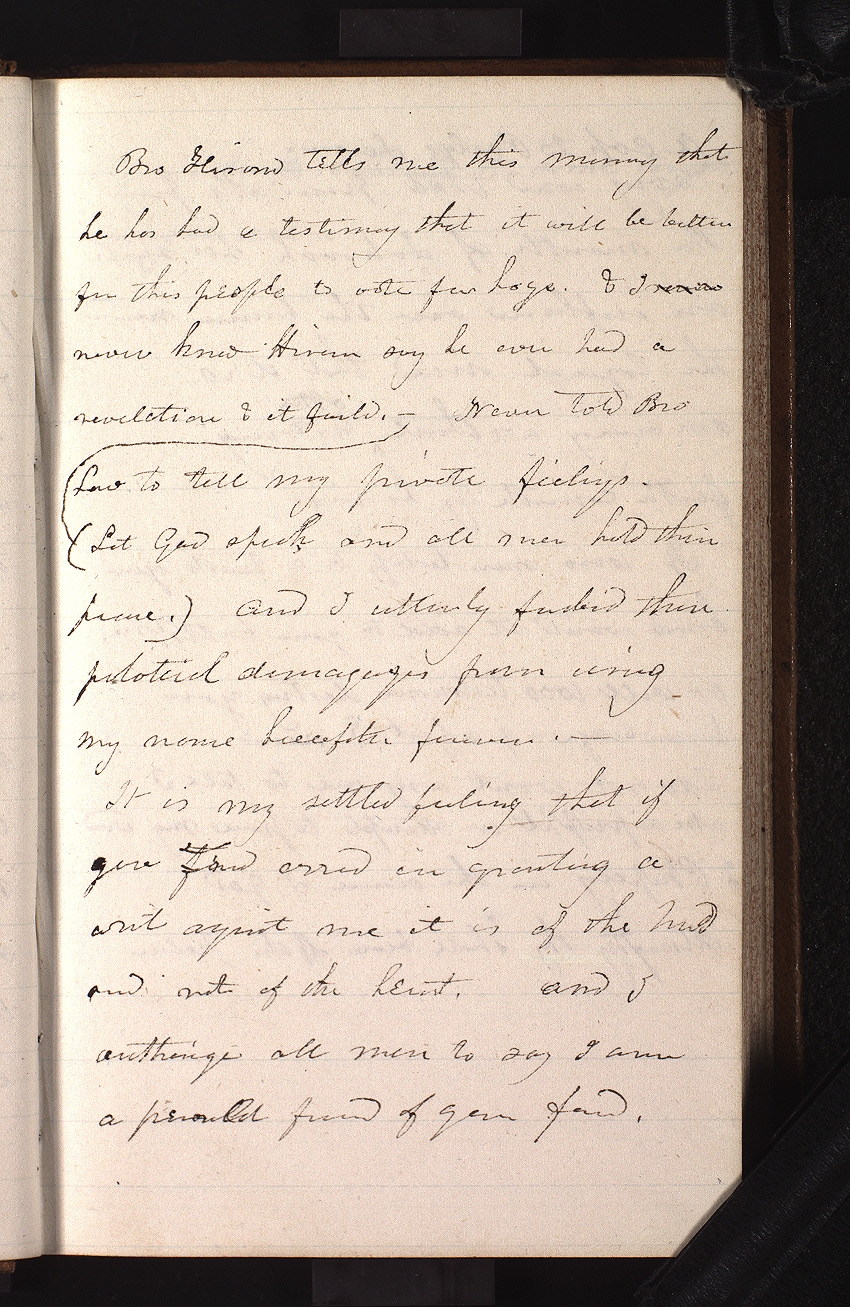 Bro Hiram tells me this morning that
he has had a testimony that it will be better
for this people to vote for hoge. & I
never knew Hiram say he ever had a
revelation & it faild.— Never told Bro
Law to tell my private feelings.
(Let God speak and all men hold their
peace.) and I utterly forbid these
politicel demagoges from using
my name hencefoth forever.—
It is my settled feeling that if
gove Ford erred in granting a
writ against me it is of the head
and not of the heart. and I
authorize all men to say I am
a personal friend of gove ford.